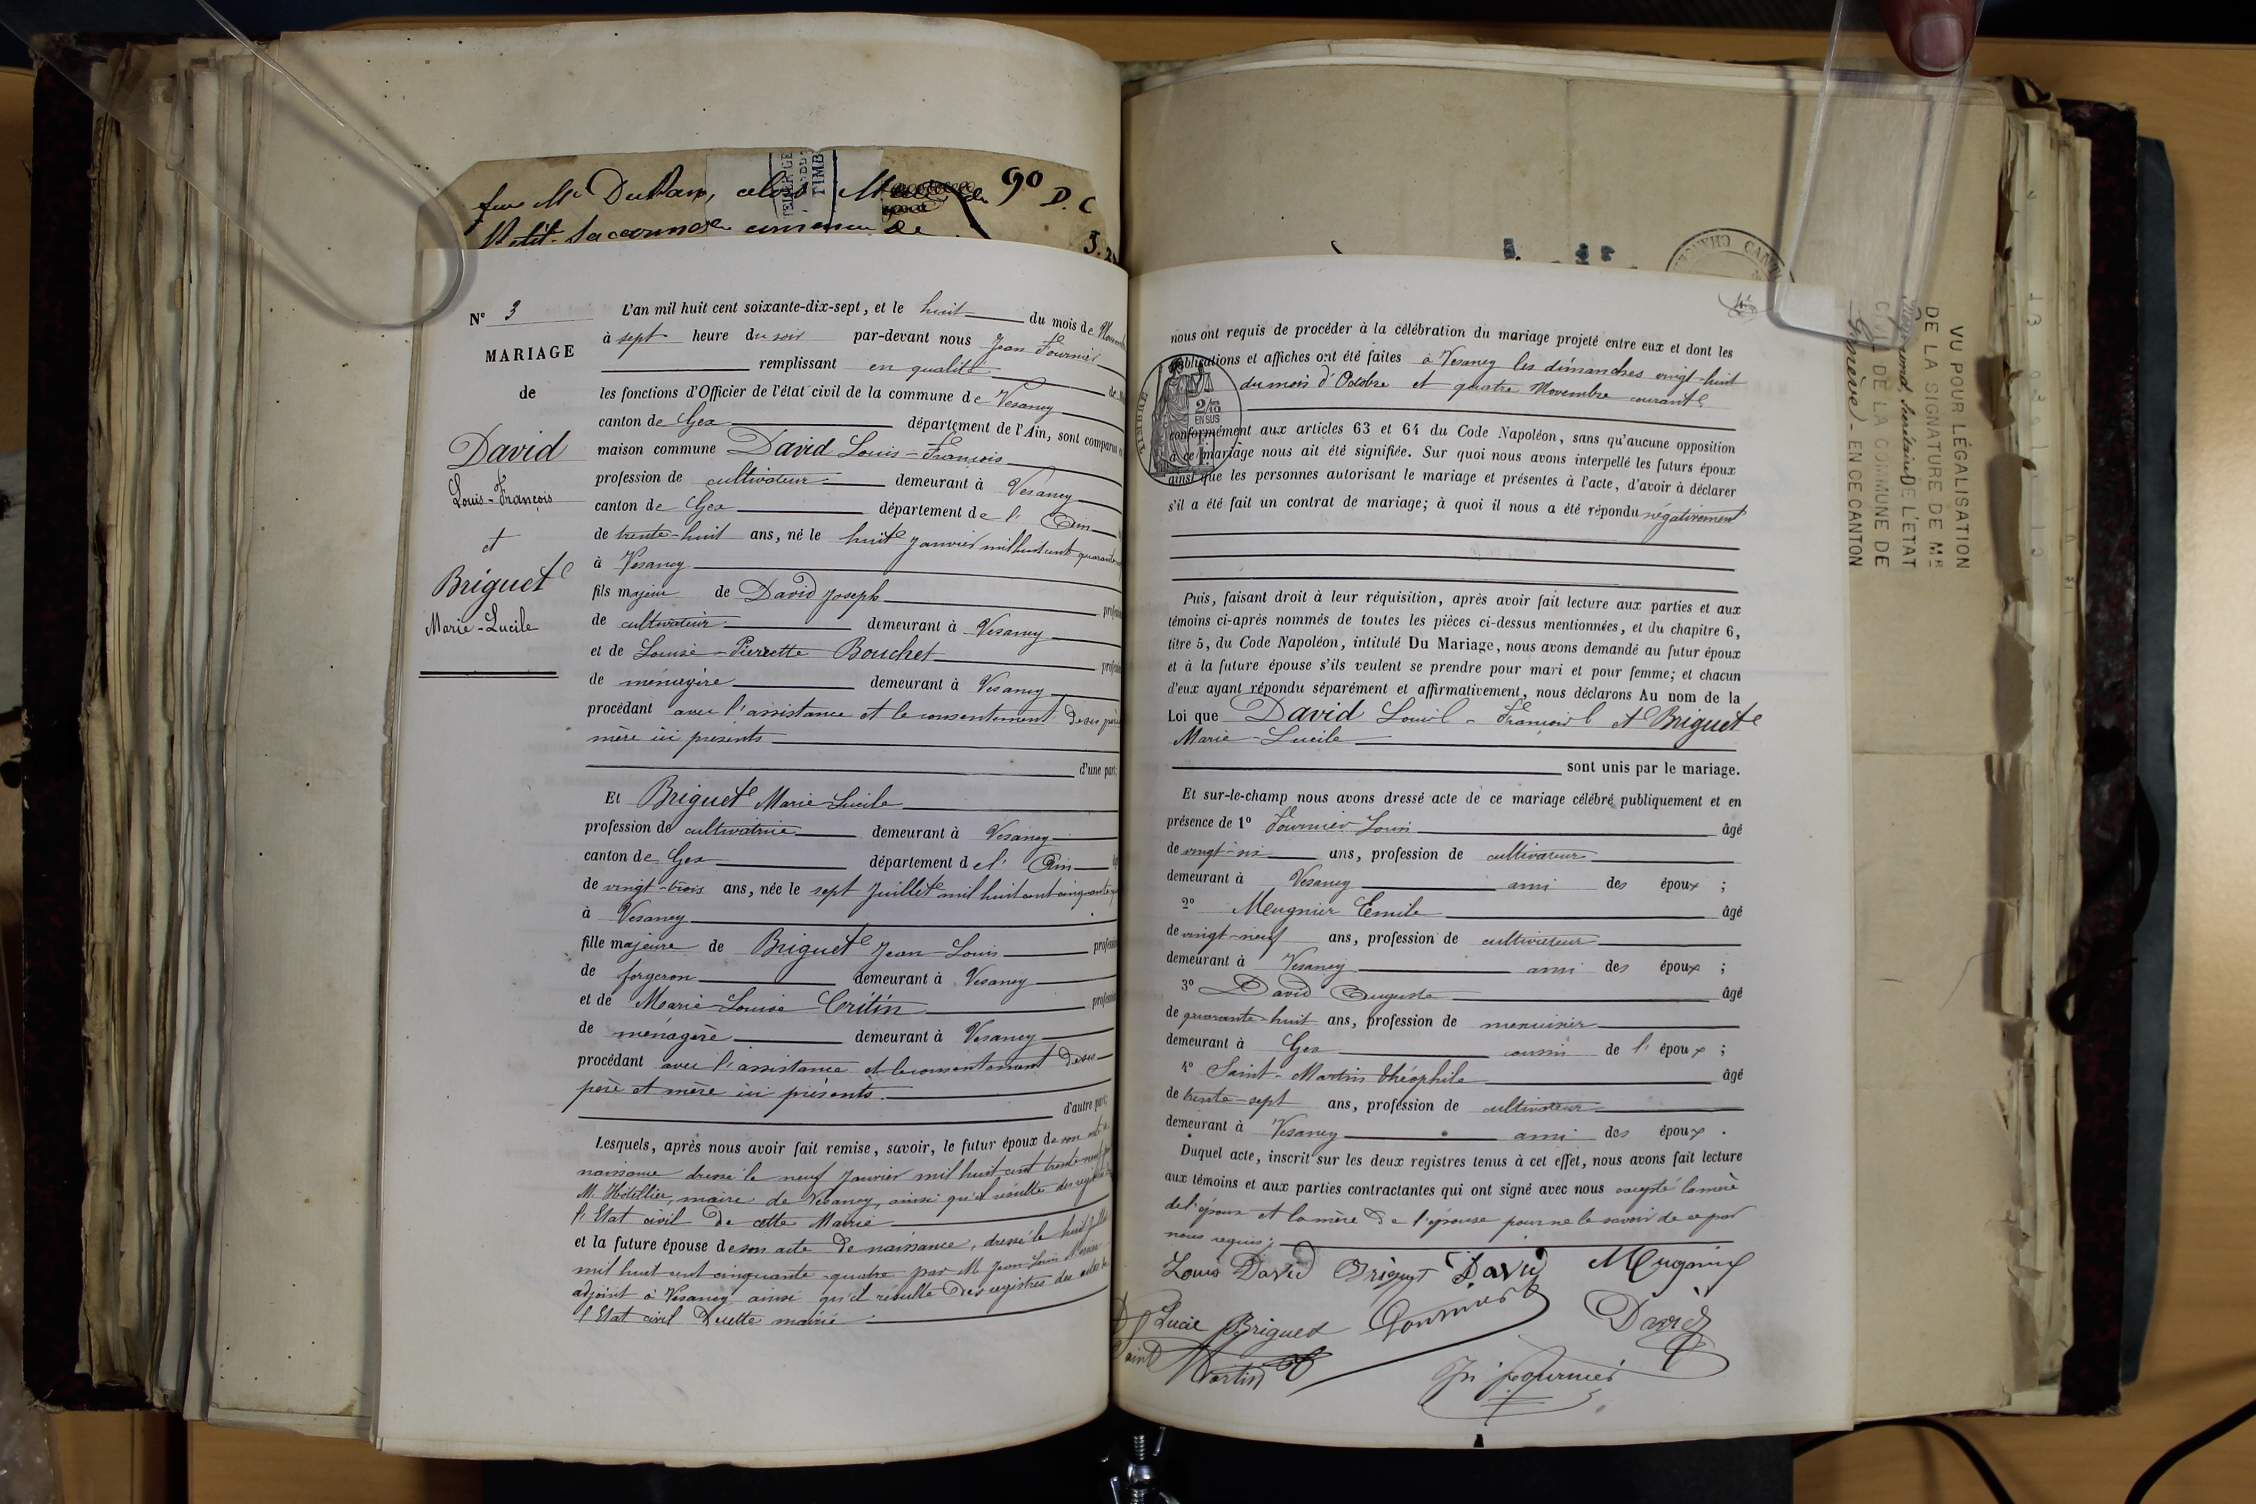 90 D. C
Nº 3
MARIAGE
de
David
Louis-François
et
Briguet
Marie-Lucile
L'an mil huit cent soixante-dix-sept, et le huit du mois de
à sept heure du soir par-devant nous Jean Fournier
remplissant en qualité
les fonctions d'Officier de l'état civil de la commune de Vesancy
canton de Gex département de l'Ain, sont comparus
maison commune David Louis-François
profession de cultivateur demeurant à Vesancy
canton de Gex département de l' Ain
de trente-huit ans, né le huit Janvier mil huit cent
à Vesancy
fils majeur de David Joseph
de cultivateur demeurant à Vesancy
et de Louise-Pierrette Bouchet
de ménagère demeurant à Vesancy
procédant avec l'assistance et le consentement de ses père
mère ici presents
d'une part
Et Briguet Marie-Lucile
profession de cultivatrice demeurant à Vesancy
canton de Gex département de l' Ain
de vingt-trois ans, née le sept Juillet mil huit cent cinquante
à Vesancy
fille majeure de Briguet Jean-Louis
de forgeron demeurant à Vesancy
et de Marie-Louise Critin
de ménagère demeurant à Vesancy
procédant avec l'assistance et le consentement de ses
père et mère ici présents.
d'autre part;
Lesquels, après nous avoir fait remise, savoir, le futur époux de son
naissance dressé le neuf Janvier mil huit cent trente neuf
M. Hôtellier, maire de Vesancy, ainsi qu'il résulte des
l'Etat civil de cette Mairie
et la future épouse de son acte de naissance, dressé le huit
mil huit cent cinquante-quatre par M Jean-Louis
adjoint à Vesancy, ainsi qu'il résulte des registres des actes
l'Etat civil de cette mairie.
nous ont requis de procéder à la célébration du mariage projeté entre eux et dont les
publications et affiches ont été faites à Vesancy les dimanches vingt-huit
du mois d'Octobre et quatre Novembre courant
2/10
EN SUS
conformément aux articles 63 et 64 du Code Napoléon, sans qu'aucune opposition
à ce mariage nous ait été signifiée. Sur quoi nous avons interpellé les futurs époux
ainsi que les personnes autorisant le mariage et présentes à l'acte, d'avoir à déclarer
s'il a été fait un contrat de mariage; à quoi il nous a été répondu négativement
Puis, faisant droit à leur réquisition, après avoir fait lecture aux parties et aux
témoins ci-après nommés de toutes les pièces ci-dessus mentionnées, et du chapitre 6,
titre 5, du Code Napoléon, intitulé Du Mariage, nous avons demandé au futur époux
et à la future épouse s'ils veulent se prendre pour mari et pour femme; et chacun
d'eux ayant répondu séparément et affirmativement, nous déclarons Au nom de la
Loi que David Louis-François et Briguet
Marie-Lucile
sont unis par le mariage.
Et sur-le-champ nous avons dressé acte de ce mariage célébré publiquement et en
présence de 1º Fournier Louis âgé
de vingt-six ans, profession de cultivateur
demeurant à Vesancy ami des époux ;
2º Mugnier Emile âgé
de vingt-neuf ans, profession de cultivateur
demeurant à Vesancy ami des époux ;
3º David Auguste âgé
de quarante-huit ans, profession de menuisier
demeurant à Gex cousin de l' époux ;
4º Saint-Martin Théophile âgé
de trente-sept ans, profession de cultivateur
demeurant à Vesancy ami des époux .
Duquel acte, inscrit sur les deux registres tenus à cet effet, nous avons fait lecture
aux témoins et aux parties contractantes qui ont signé avec nous excepté la mère
de l'époux et la mère de l'épouse pour ne le savoir de ce par
nous requis;
Louis David Briguet David Mugnier
Lucie Briguet Fournier David
Saint Martin
Jn Fournier
VU POUR LÉGALISATION
DE LA SIGNATURE DE Mr
DE L'ÉTAT
CIVIL DE LA COMMUNE DE
(Genève) - EN CE CANTON